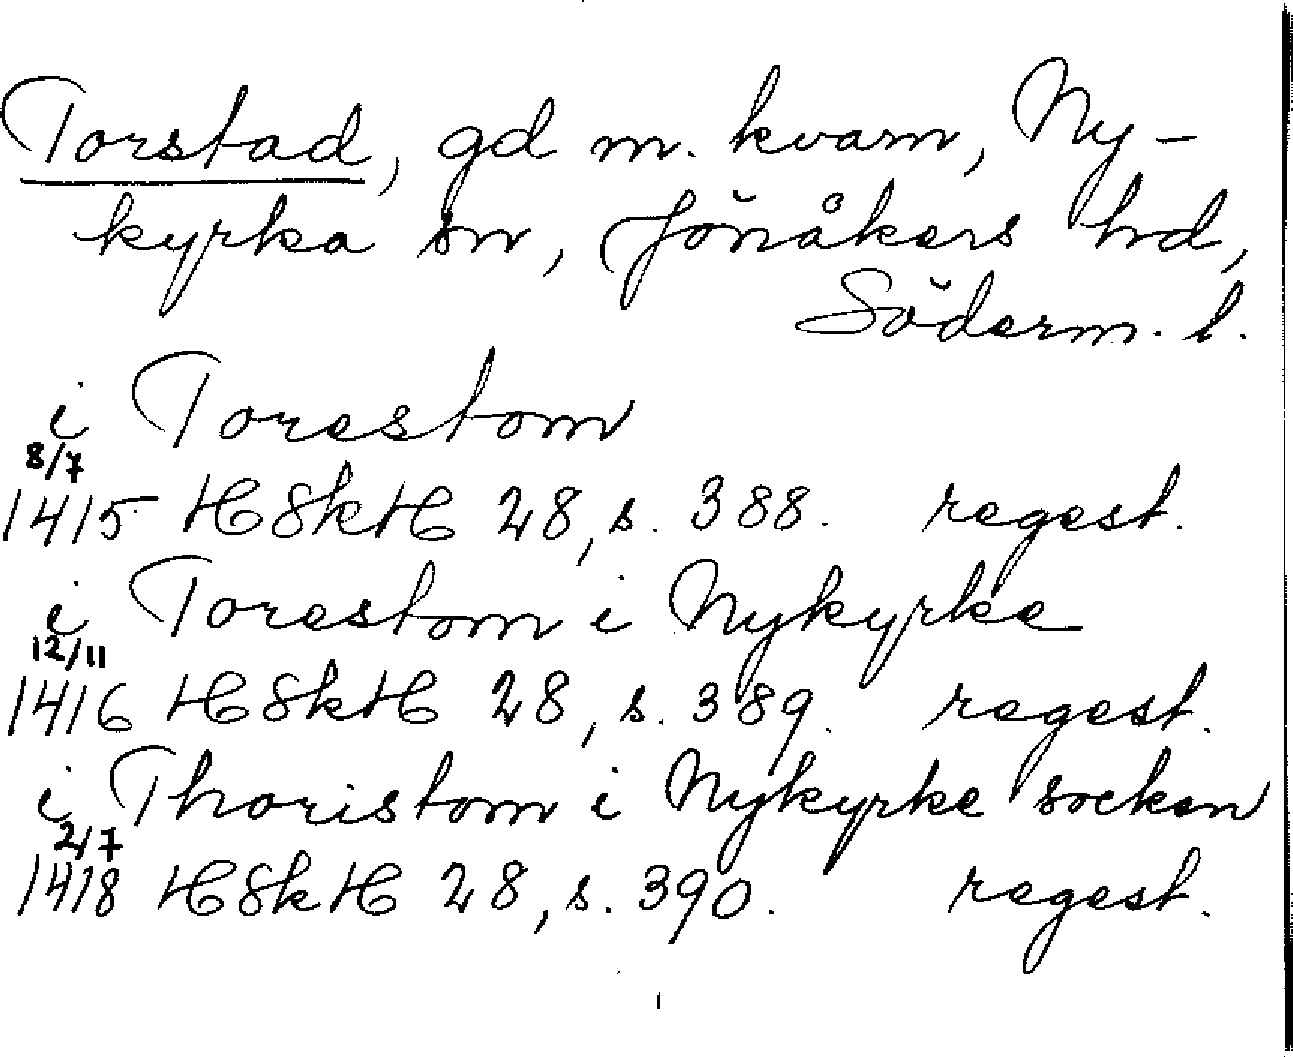 Torstad, gd m. kvarn, Ny-
kyrka sn, Jönåkers hd,
Söderm. l.
i Torestom
8/7
1415 HSkH 28, s. 388. regest.
i Torestom i Nykyrke
12/11
1416 HSkH 28, s. 389. regest.
i Thoristom i Nykyrke socken
2/7
1418 HSkH 28, s. 390. regest.